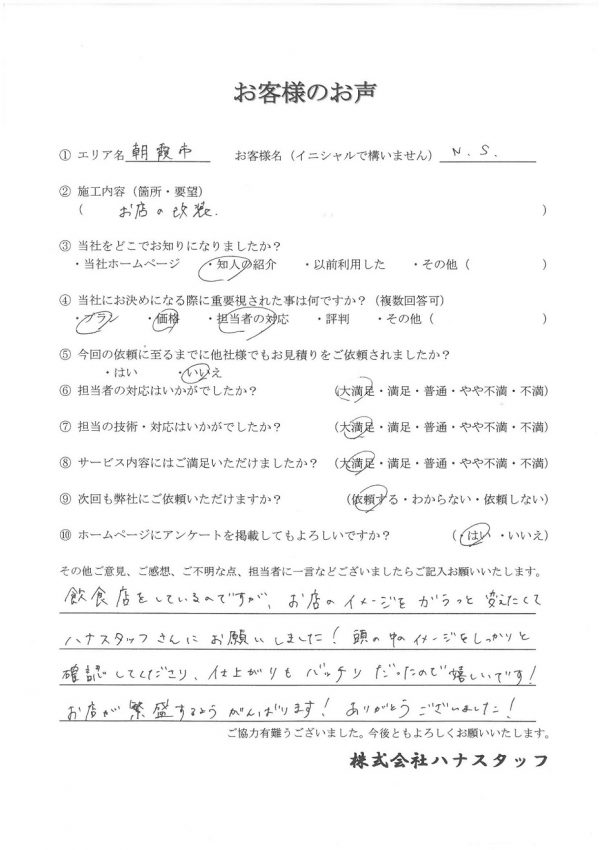 お客様のお声
① エリア名 朝霞市 お客様名（イニシャルで構いません） N.S.
② 施工内容（箇所・要望）
（ お店の改装. ）
③ 当社をどこでお知りになりましたか？
・当社ホームページ ・知人の紹介 ・以前利用した ・その他（ ）
④ 当社にお決めになる際に重要視された事は何ですか？（複数回答可）
・プラン ・価格 ・担当者の対応 ・評判 ・その他（ ）
⑤ 今回の依頼に至るまでに他社様でもお見積りをご依頼されましたか？
・はい ・いいえ
⑥ 担当者の対応はいかがでしたか？ （大満足・満足・普通・やや不満・不満）
⑦ 担当の技術・対応はいかがでしたか？ （大満足・満足・普通・やや不満・不満）
⑧ サービス内容にはご満足いただけましたか？ （大満足・満足・普通・やや不満・不満）
⑨ 次回も弊社にご依頼いただけますか？ （依頼する・わからない・依頼しない）
⑩ ホームページにアンケートを掲載してもよろしいですか？ （・はい ・いいえ）
その他ご意見、ご感想、ご不明な点、担当者に一言などございましたらご記入お願いいたします。
飲食店をしているのですが、お店のイメージをガラっと変えたくて
ハナスタッフさんにお願いしました！頭の中のイメージをしっかりと
確認してくださり、仕上がりもバッチリだったので嬉しいです！
お店が繁盛するようがんばります！ありがとうございました！
ご協力有難うございました。今後ともよろしくお願いいたします。
株式会社ハナスタッフ